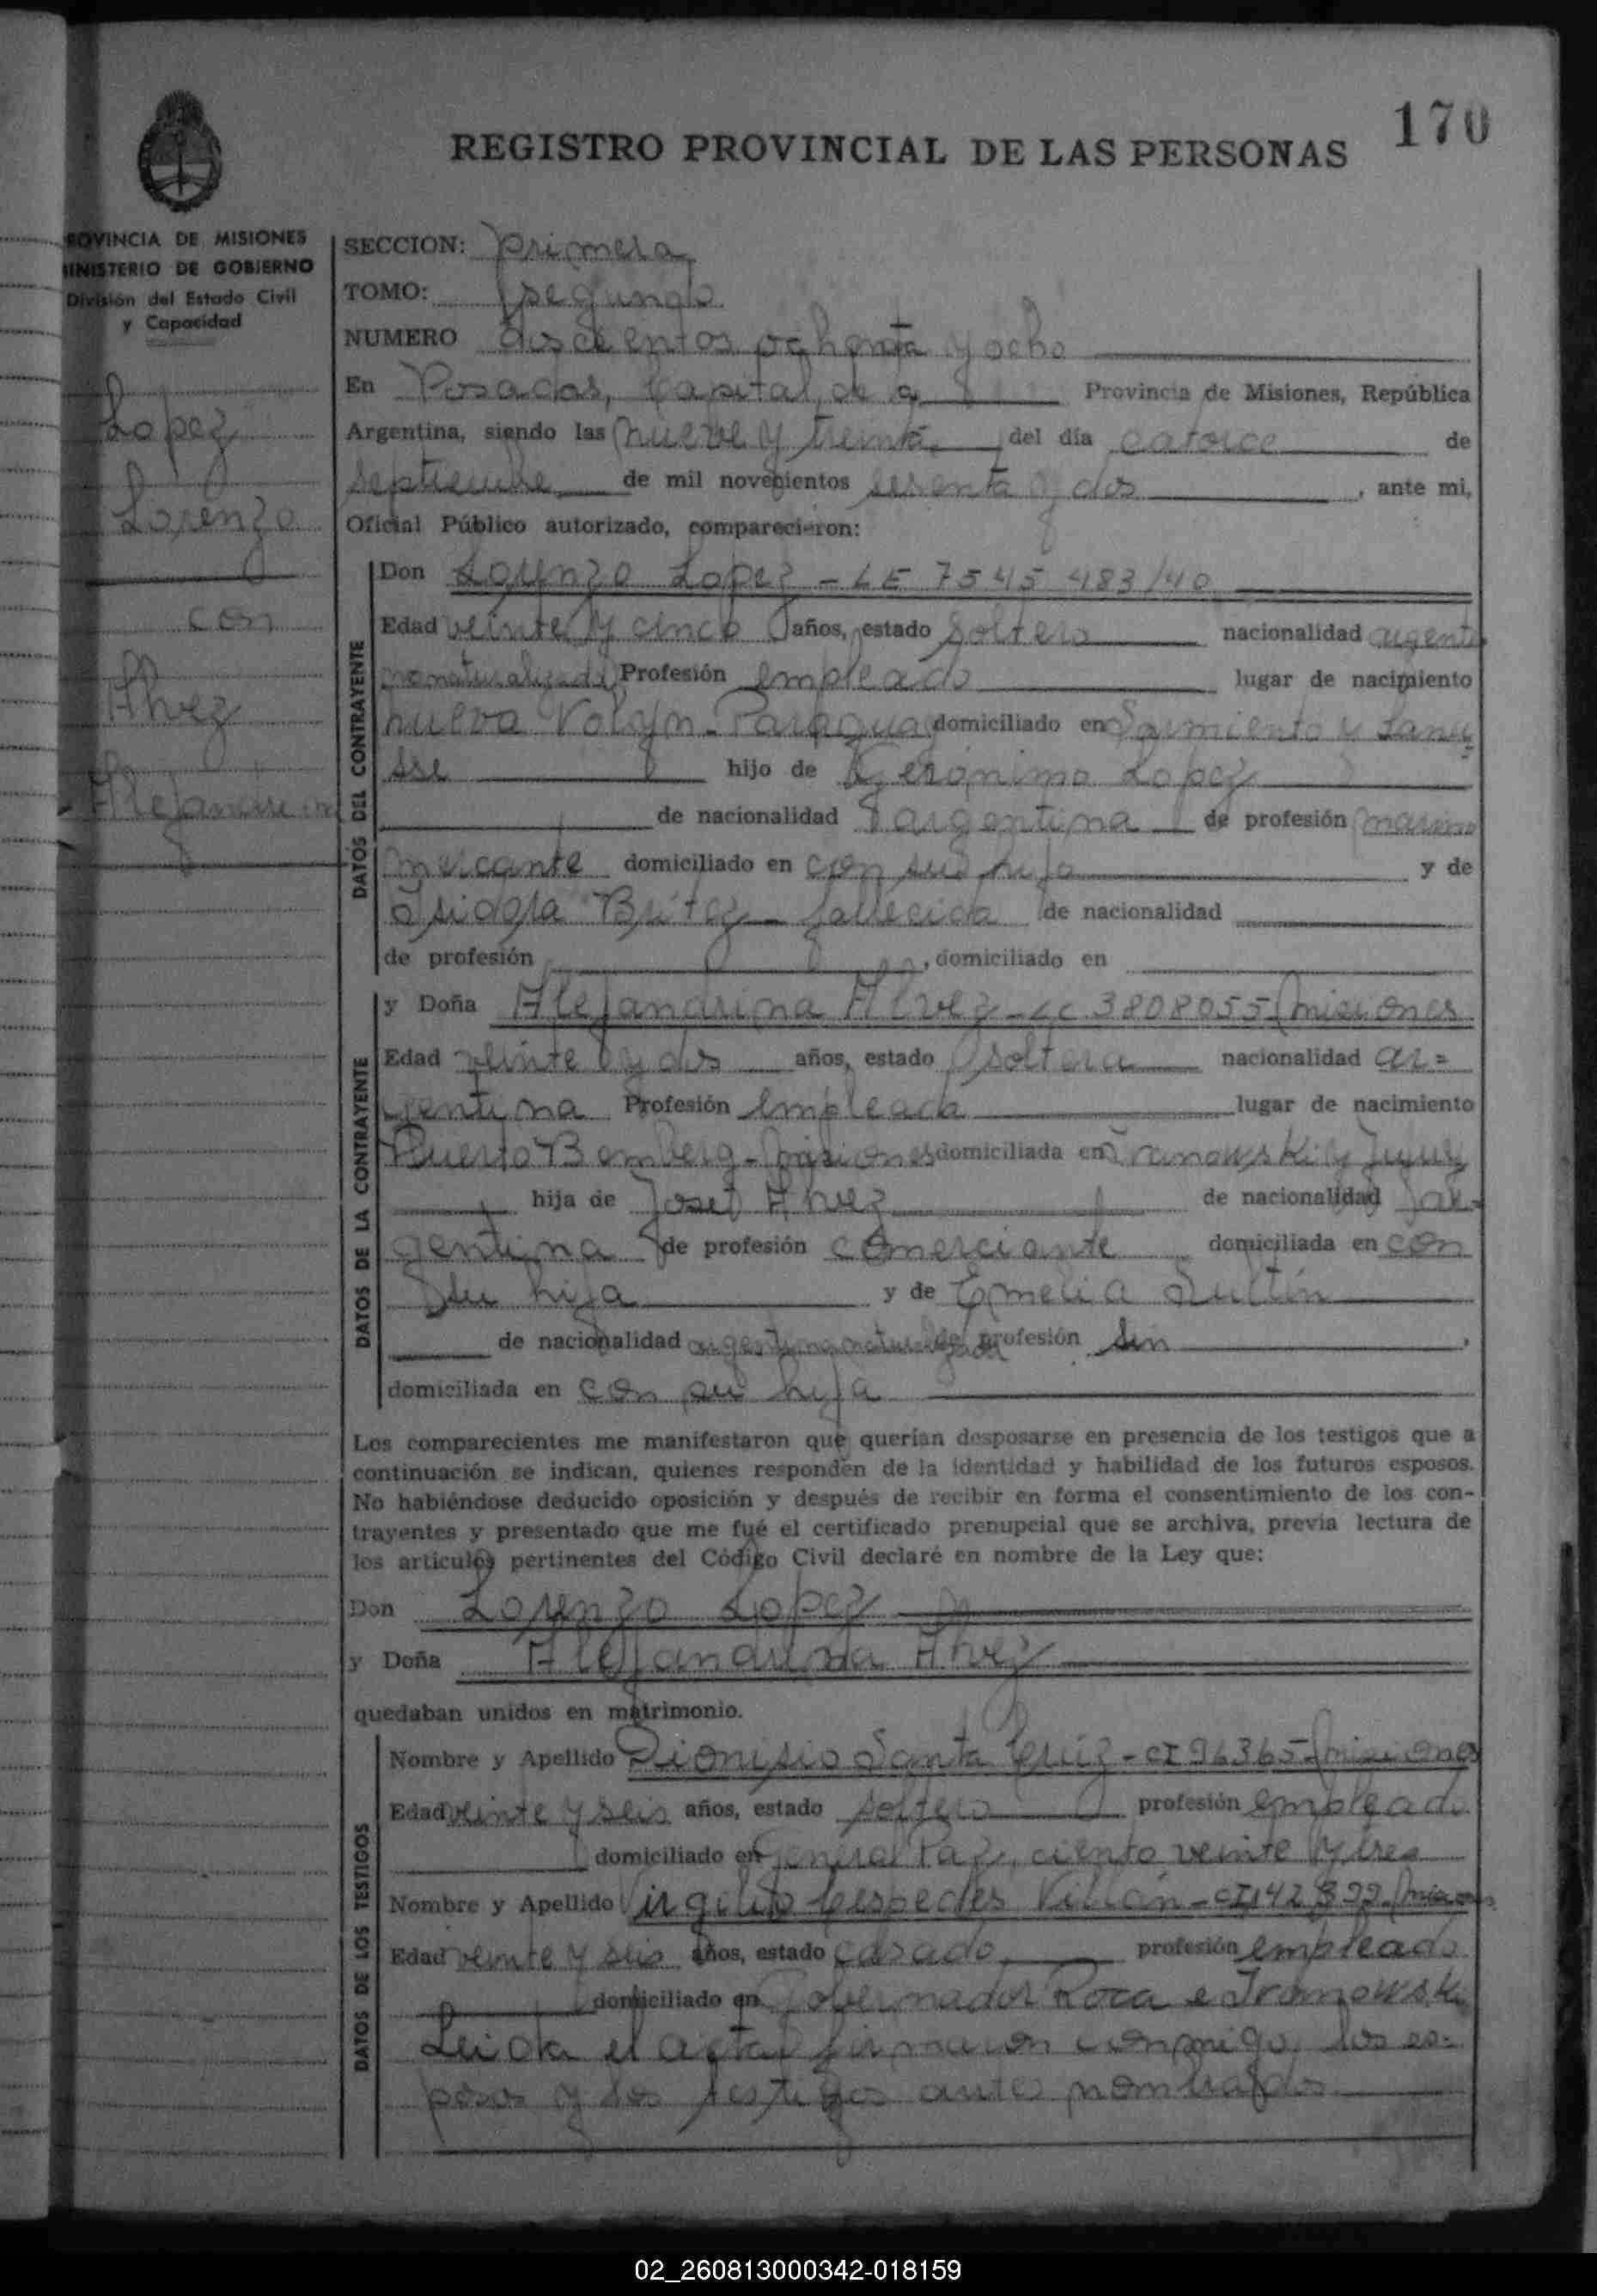 170
REGISTRO PROVINCIAL DE LAS PERSONAS
PROVINCIA DE MISIONES
MINISTERIO DE GOBIERNO
División del Estado Civil
y Capacidad
Lopez
Lorenzo
con
Alvez
Alejandrina
SECCION: primera
TOMO: segundo
NUMERO doscientos ochenta y ocho
En Posadas, Capital de la Provincia de Misiones, República
Argentina, siendo las nueve y treinta del día catorce de
septiembre de mil novecientos sesenta y dos, ante mi,
Oficial Público autorizado, comparecieron:
DATOS DEL CONTRAYENTE
Don Lorenzo Lopez - LE 7545483/40
Edad veinte y cinco años, estado soltero nacionalidad argenti
no naturalizado Profesión empleado lugar de nacimiento
nueva Volyn - Paraguay domiciliado en Sarmiento y Lanu
sse hijo de Gerónimo Lopez
de nacionalidad argentina de profesión marino
mercante domiciliado en con su hijo y de
Isidora Britez - fallecida de nacionalidad
de profesión , domiciliado en
DATOS DE LA CONTRAYENTE
y Doña Alejandrina Alvez - LC 3808055 - misiones
Edad veinte y dos años, estado soltera nacionalidad ar=
gentina Profesión empleada lugar de nacimiento
Puerto Bemberg - misiones domiciliada en Iranowski y Jujuy
hija de José Alvez de nacionalidad ar-
gentina de profesión comerciante domiciliada en con
su hija y de Emelia
de nacionalidad argentina naturalizada de profesión sin ,
domiciliada en con su hija
Los comparecientes me manifestaron que querían desposarse en presencia de los testigos que a
continuación se indican, quienes responden de la identidad y habilidad de los futuros esposos.
No habiéndose deducido oposición y después de recibir en forma el consentimiento de los con-
trayentes y presentado que me fué el certificado prenupcial que se archiva, previa lectura de
los artículos pertinentes del Código Civil declaré en nombre de la Ley que:
Don Lorenzo Lopez
y Doña Alejandrina Alvez
quedaban unidos en matrimonio.
DATOS DE LOS TESTIGOS
Nombre y Apellido Dionisio Santa Cruz - CI 96365 - misiones
Edad veinte y seis años, estado soltero profesión empleado
domiciliado en General Paz, ciento veinte y tres
Nombre y Apellido Virgilio Cespedes Villán - CI 142899 - misiones
Edad veinte y seis años, estado casado profesión empleado
domiciliado en Gobernador Roca e Iranowski
Leida el acta, firmaron conmigo, los es-
posos y los testigos antes nombrados
02_260813000342-018159